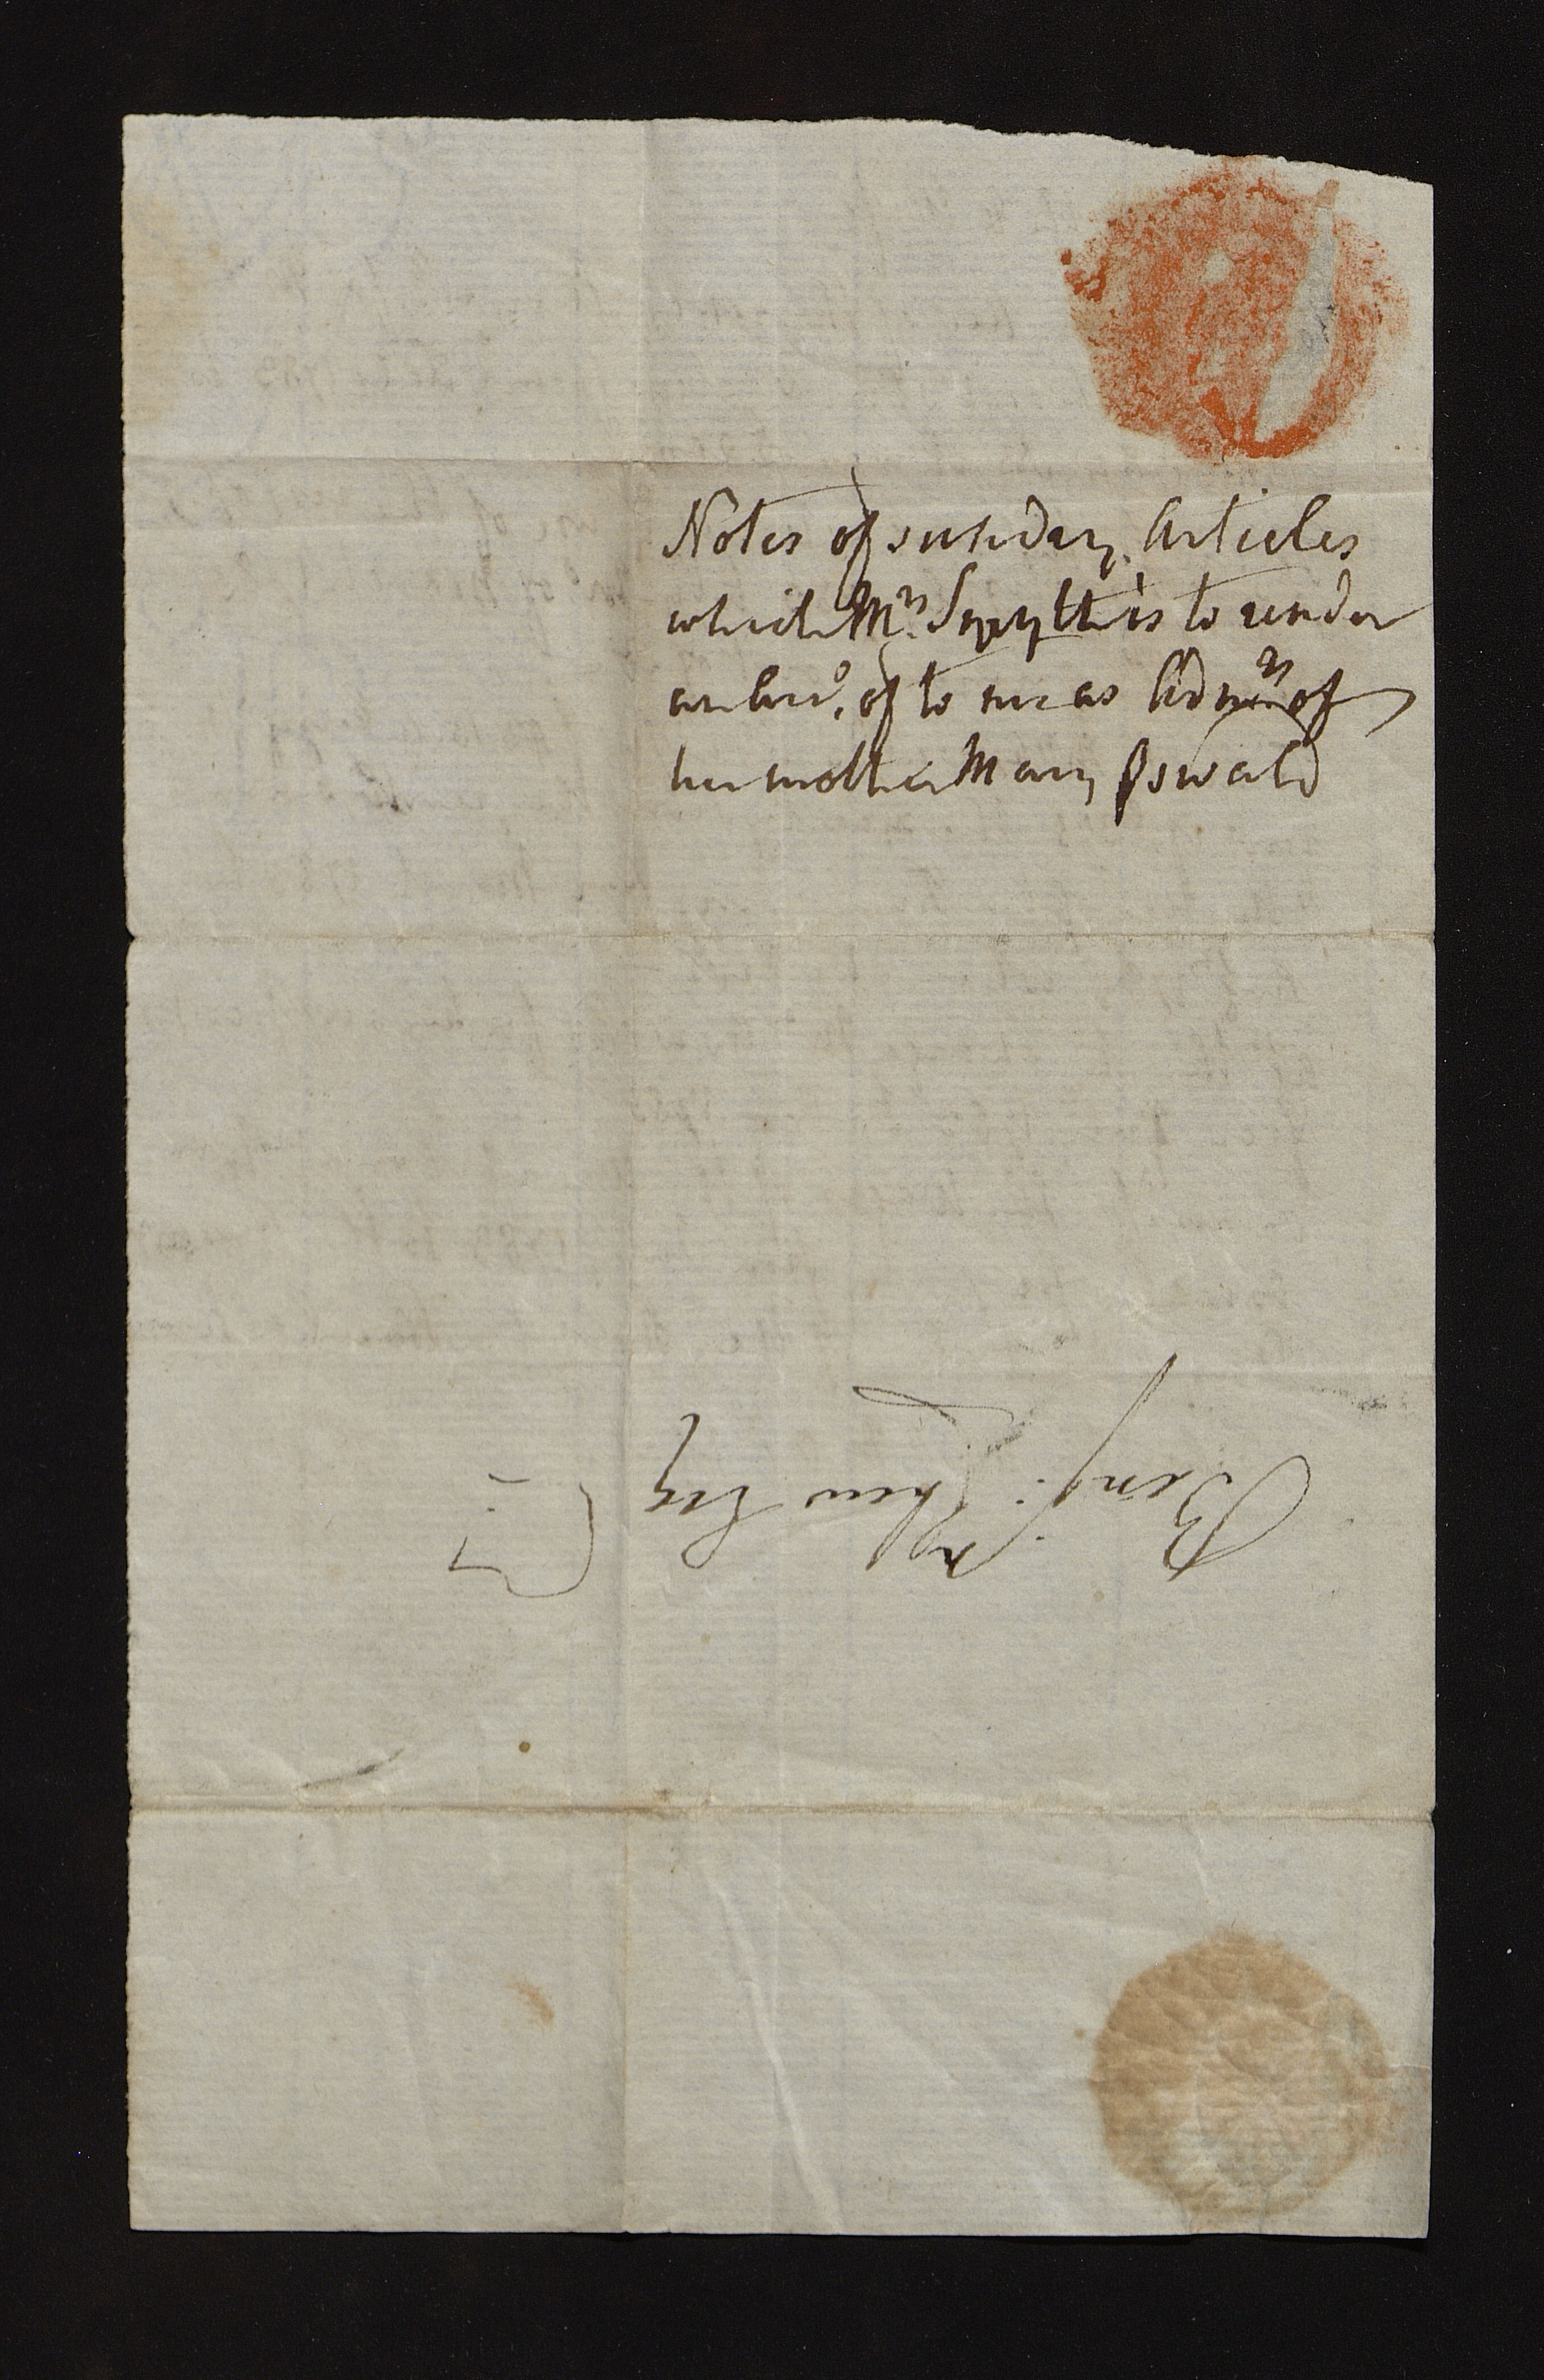 Notes of sundary Articles
which Mrs Smyth is to render
an Acco. of to me as Admr. of
her mother Mary Oswald
Benj: Chew Esq